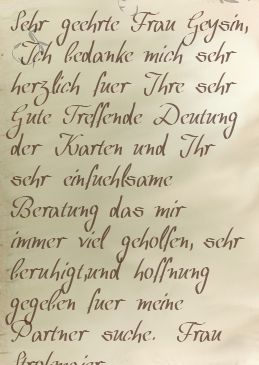 Sehr geehrte Frau Geysin,
Ich bedanke mich sehr
herzlich fuer Ihre sehr
Gute Treffende Deutung
der Karten und Ihr
sehr einfuehlsame
Beratung das mir
immer viel geholfen, sehr
beruhigt,und hoffnung
gegeben fuer meine
Partner suche. Frau